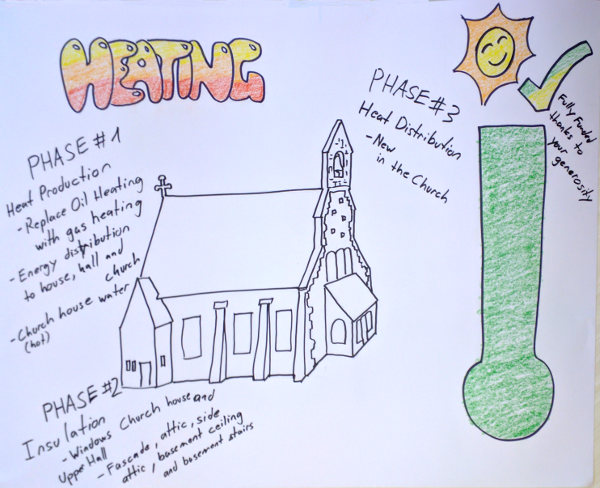 HEATING
PHASE #1
Heat Production
- Replace Oil Heating
with gas heating
- Energy distribution
to house, hall and
church
- Church house water
(hot)
PHASE #2
Insulation
- Windows Church house and
Uppe Hall
- Fascade, attic, side
attic, basement ceiling
and basement stairs
PHASE #3
Heat Distribution
- New
in the Church
Fully Funded
thanks to
your generosity